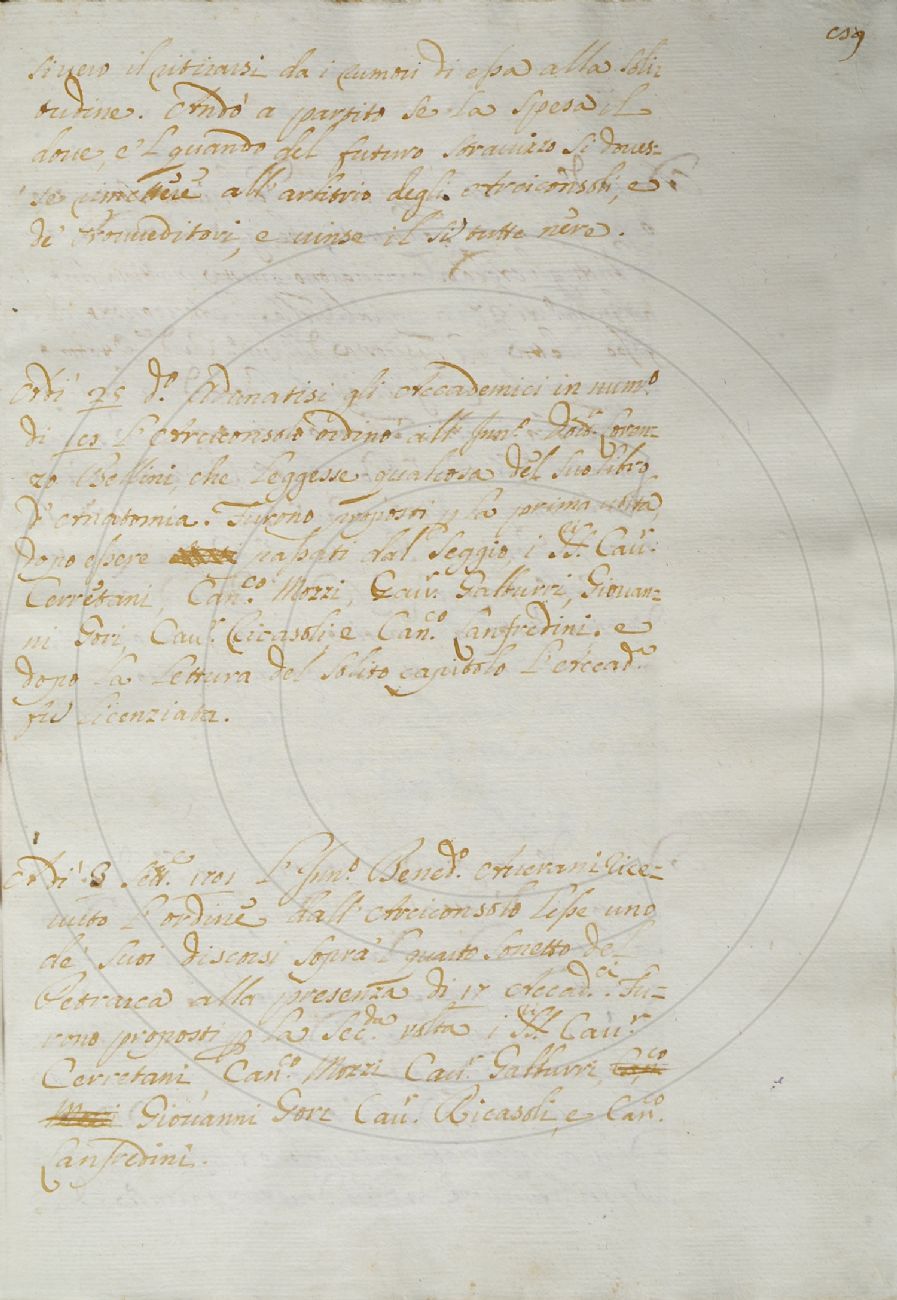 si vero il ritirarsi da i rumori di essa alla soli-
tudine. Andò a partito se la spesa il
dove, e 'l quando del futuro stravizzo si doves-
se rimettere all'arbitrio degli Arciconsoli, e
de' Provveditori, e vinse il sì tutte nere.
A dì 25 d.º Adunatisi gli Accademici in num.º
di L'Arciconsolo ordinò all' Illm.º Dott.r Loren-
zo Bellini, che leggesse qualcosa del suo libro
d'Anatomia. Furono proposti p la prima volta,
dopo essere passati dal Seggio, i SS.ri Cav.r
Cerretani, Can.co Mozzi, Cav.r Gabburri, Giovan-
ni Gori, Cav.r Ricasoli, e Can.co Lanfredini. e
dopo la lettura del solito capitolo l'Accad.a
fù licenziata.
A dì 8 Sett.e 1701 L'Illm.º Bened.º Averani rice-
vuto l'ordine dall'Arciconsolo lesse uno
de' suoi discorsi sopra 'l quarto sonetto del
Petrarca alla presenza di 17 Accad.ci. Fu-
rono proposti p la sec.da volta i SS.ri Cav.r
Cerretani Can.co Mozzi Cav.r Gabburri,
Giovanni Gori Cav.r Ricasoli, e Can.co
Lanfredini.